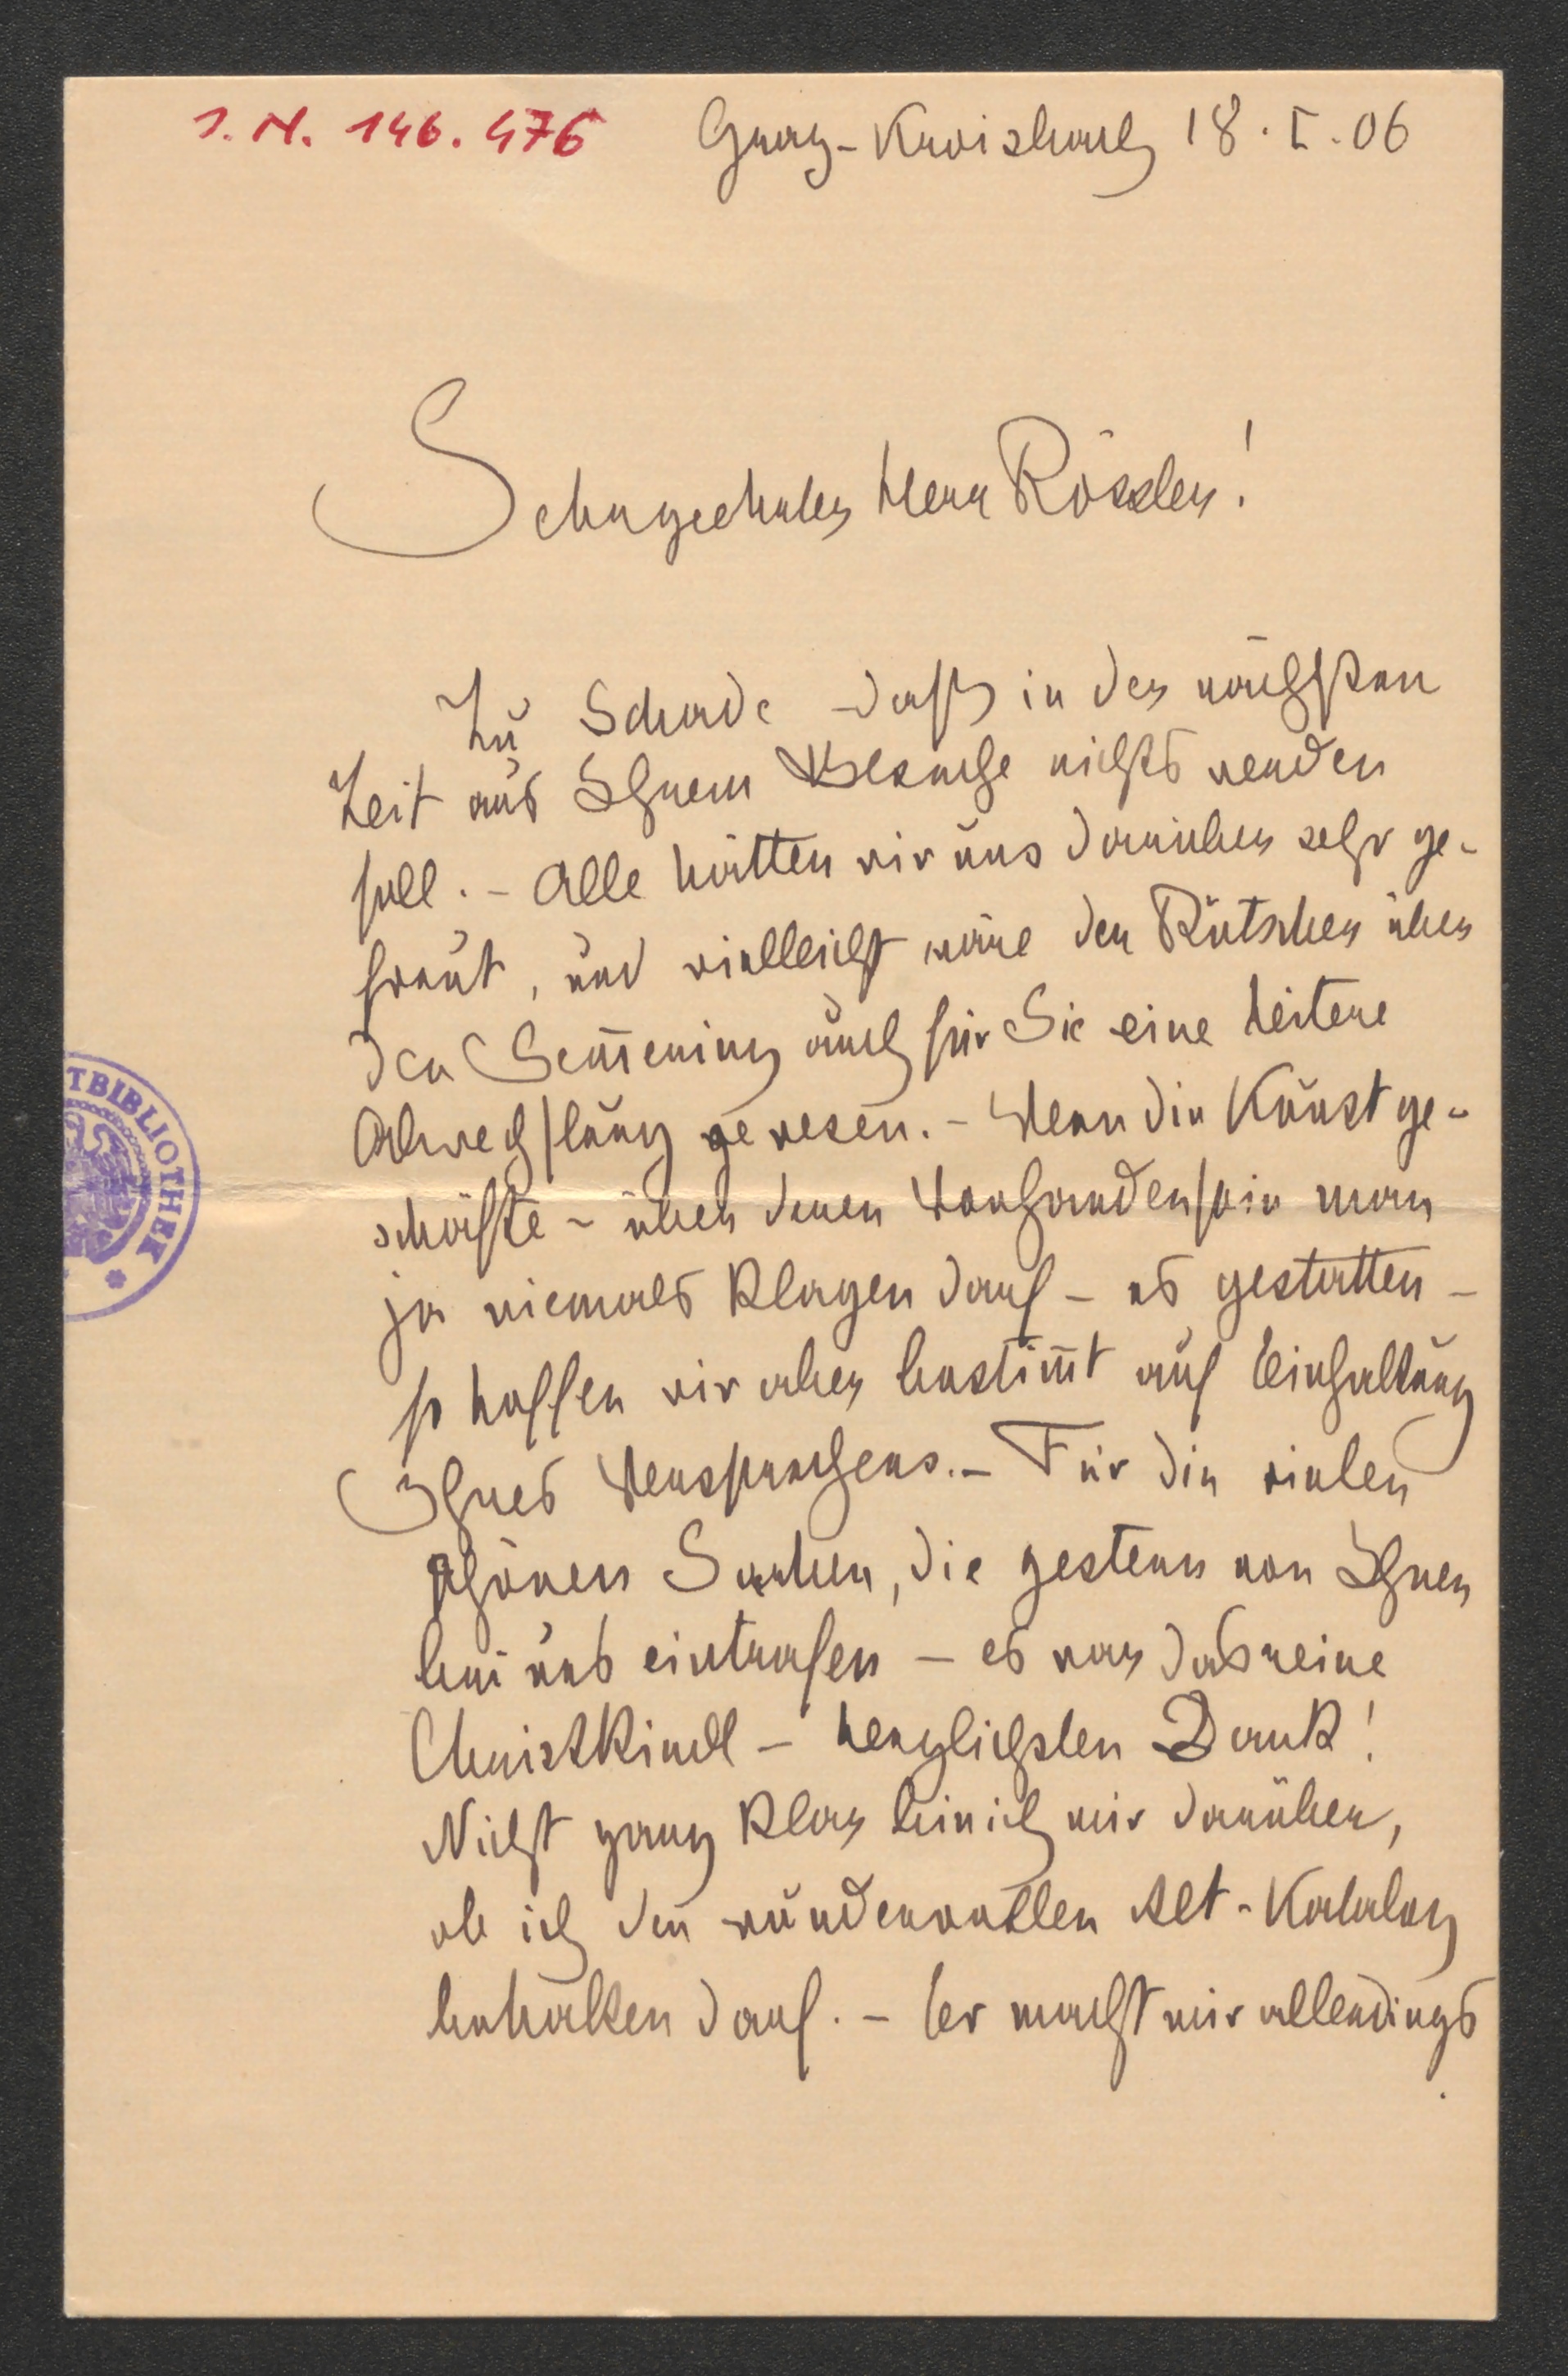 I. N. 146.476
Graz-Kroisbach 18.I.06
Sehrgeehrter Herr Rössler!
Zu Schade dass in der nächsten
Zeit aus Ihrem Besuche nichts werden
soll. - Alle hätten wir uns darüber sehr ge-
freut, und vielleicht wäre der Rutscher über
den Sem̅ering auch für Sie eine heitere
Abwechslung gewesen. - Wenn die Kunstge-
schäfte - über deren Vorhandensein man
ja niemals klagen darf - es gestatten -
so hoffen wir aber bestim̅t auf Einhaltung
Ihres Versprechens. - Für die vielen
schönen Sachen, die gestern von Ihnen
bei uns eintrafen - es war das reine
Christkindl - herzlichsten Dank!
Nicht ganz klar bin ich mir darüber,
ob ich den wundervollen Alt-Katalog
behalten darf. - Er macht mir allerdings
TBIBLIOTHEK